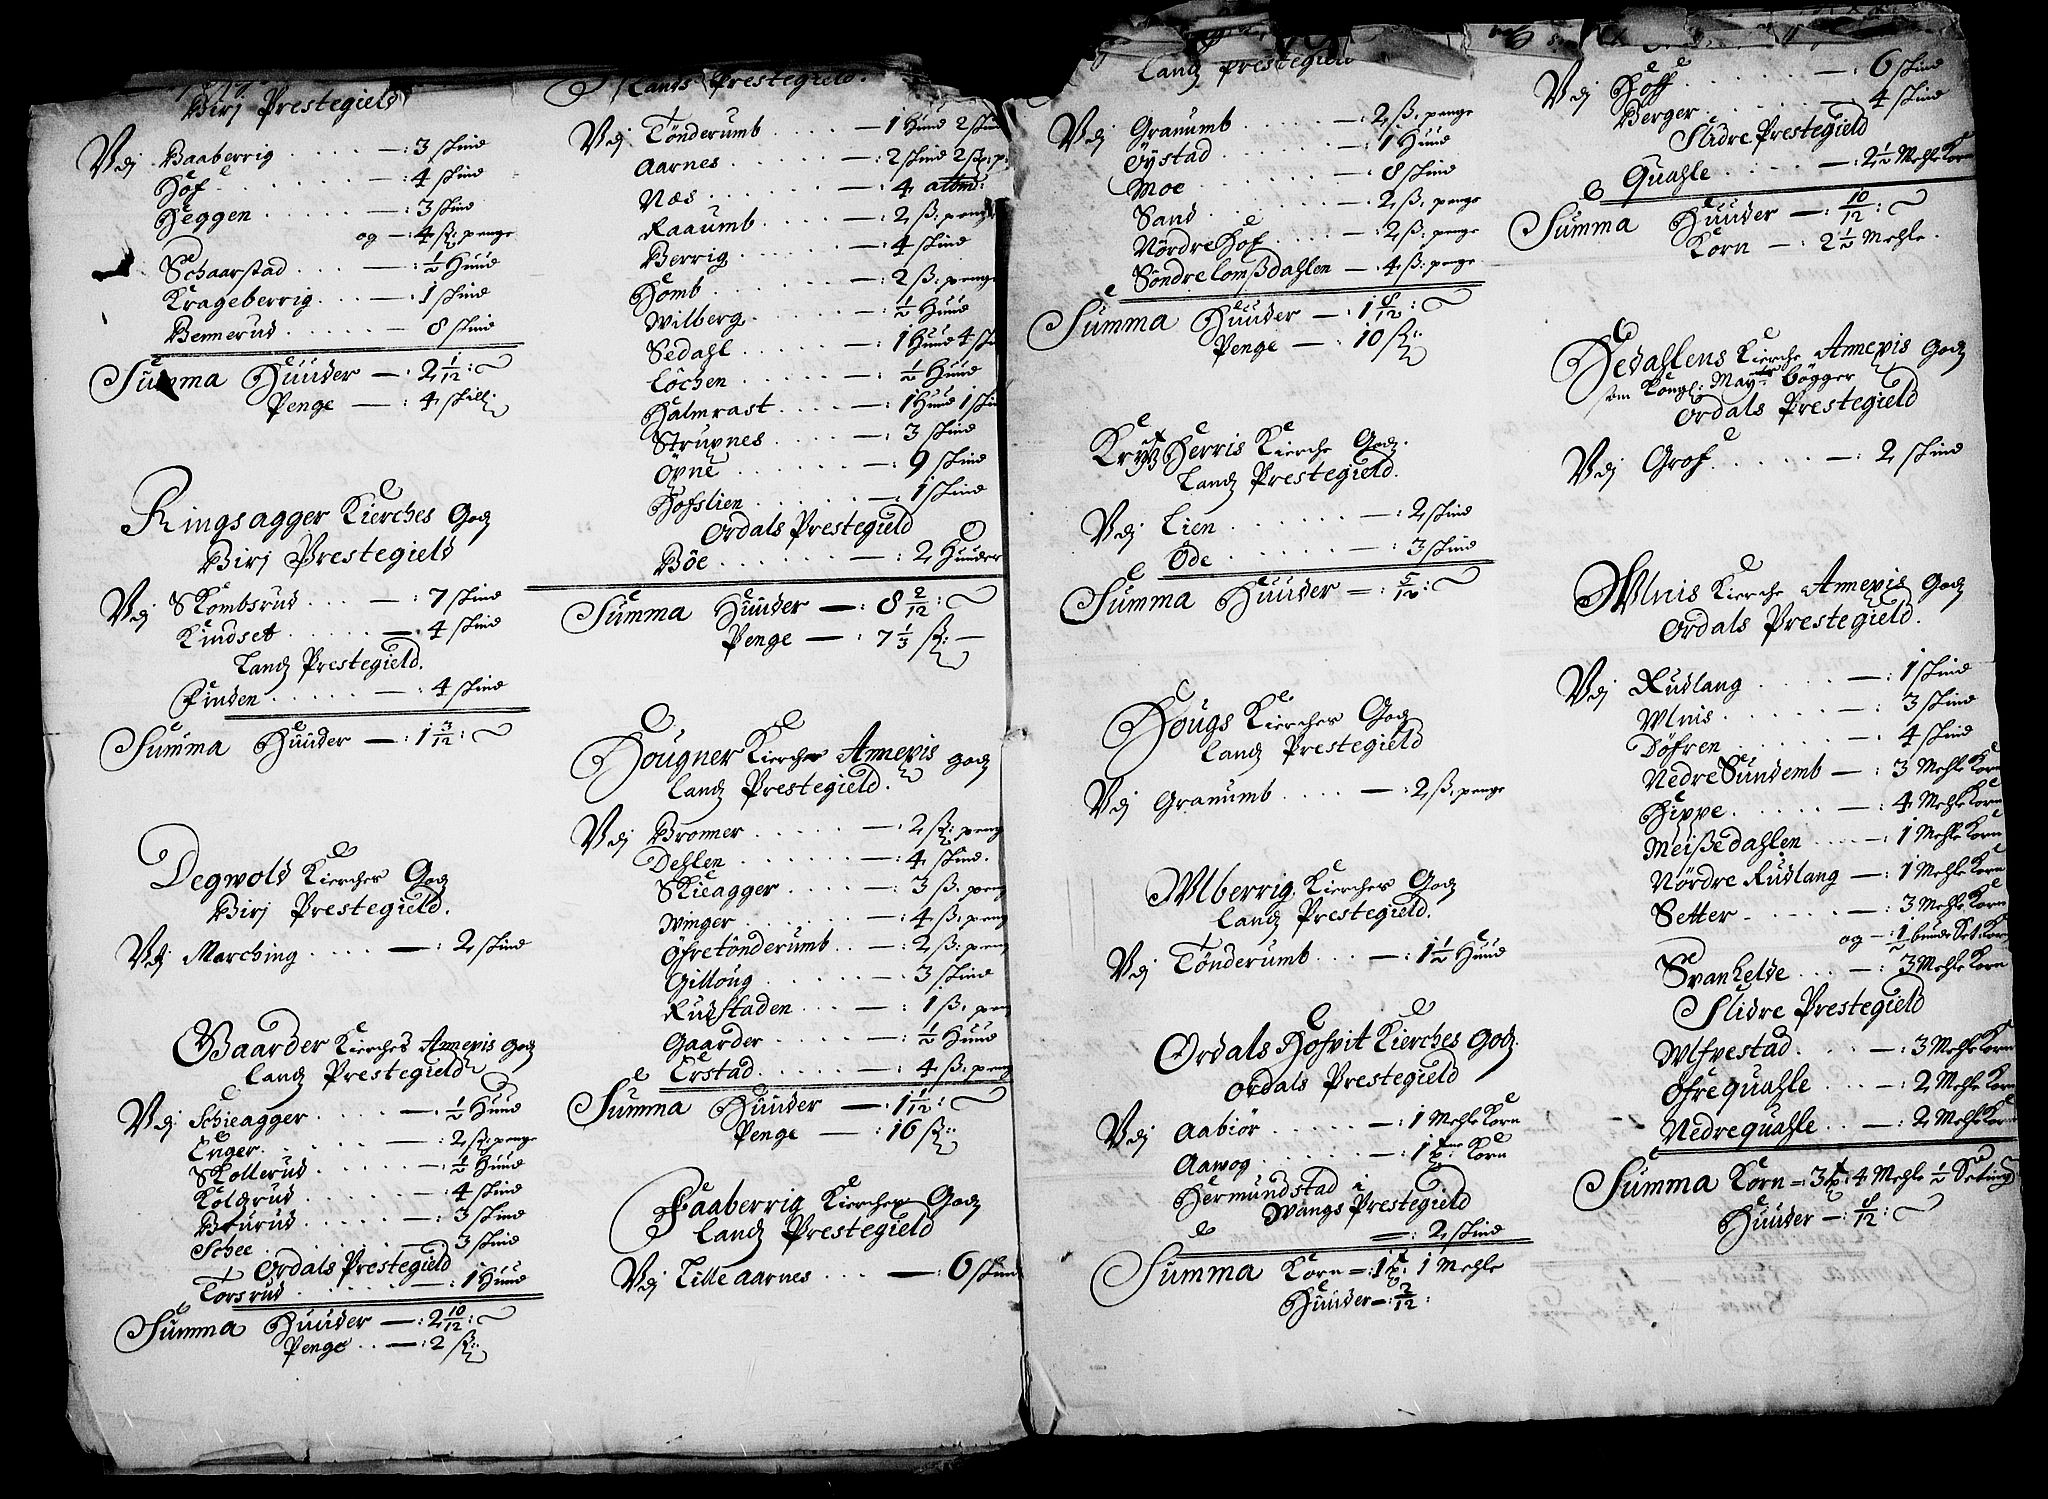 Birj Prestegield
Vdj Baaberrig . . . . —: 3 skind
Hof . . . . —: 4 skind
Heggen . . . . —: 3 skind
og —: 4 ß: penge
Schaarstad . . . —: ½ Huud
Krageberrig . . . —: 1 skind
Bennerud . . . . — 8 skind
Summa Huuder —: 2 1/12:
Penge —: 4 skill:
Ringsagger Kierches Godz
Birj Prestegield
Vdj Skombsrud . . . —: 7 skind
Kindset . . . . —: 4 skind
Landz Prestegield.
Finden . . . . —: 4 skind
Summa Huuder —: 1 3/12:
Degwold Kierches Godz
Birj Prestegield.
Vdj Marching . . . . —: 2 skind
Gaarder Kierches Annexis Godz
Landz Prestegield
Vdj Schieagger . . . . —: ½ Huud
Enger . . . . —: 2 ß: penge
Skollerud . . . . —: ½ Huud
Koldrud . . . . —: 4 skind
Bturud . . . . —: 3 skind
Schee . . . . —: 3 skind
Ordals Prestegield
Torsrud . . . . —: 1 Huud
Summa Huuder —: 2 10/12:
Penge . . —: 2 ß:
Lands Prestegield.
Vdj Tönderumb . . . . —: 1 Huud 2 skind
Aarnes . . . . —: 2 skind 2 ß: p:
Næs . . . . —: 4
Raaumb . . . . —: 2 ß: penge
Berrig . . . . —: 4 skind
Homb . . . . —: 2 ß: penge
Wilberg . . . . —: ½ Huud
Sedahl . . . . —: 1 Huud 4 sk
Löchen . . . . —: ½ Huud
Halmrast . . . . —: 1 Huud 1 skin
Strupnes . . . . —: 3 skind
Öpne . . . . —: 9 skind
Hofslien . . . . —: 1 skind
Ordals Prestegield
Böe . . . . —: 2 Huuder
Summa Huuder —: 8 2/12:
Penge —: 7 ⅓ ß: —
Hougner Kierches Annexis Godz
Landz Prestegield.
Vdj Bromer . . . . —: 2 ß: peng
Dehlen . . . . —: 4 skind.
Skieagger . . . . —: 3 ß: peng
Winger . . . . —: 4 ß: peng
Öfretönderumb . . —: 2 ß: peng
Gilloug . . . . —: 3 skind
Rudstaden . . . —: 1 ß: peng
Gaarder . . . . —: ½ Huud
Erstad . . . . —: 4 ß: peng
Summa Huuder —: 1 1/12:
Penge —: 16 ß:
Faaberrig Kierches Godz
Landz Prestegield
Vdj Lille Aarnes . . . —: 6 skind
Landz Prestegield
Vdj Granumb . . . . —: 2 ß: penge
Öystad . . . . —: 1 Huud
Moe . . . . —: 8 skind
Sand . . . . —: 2 ß: penge
Nördre Hof . . . . —: 2 ß: penge
Söndre Lomßdahlen —: 4 ß: penge
Summa Huuder —: 1 8/12:
Penge —: 10 ß:
Herris Kierche Godz.
Landz Prestegield.
Vdj Lien . . . . —: 2 skind
Öde . . . . —: 3 skind
Summa Huuder —: 5/12:
Hougs Kierches Godz
Landz Prestegield
Vdj Granumb . . . . —: 2 ß: penge
Wlberrig Kierches Godz
Landz Prestegield.
Vdj Tönderumb . . . —: 1 ½ Huud
Ordals Hofvit Kierches Godz.
Ordals Prestegield
Vdj Aabiör . . . . —: 1 Mehle Korn
Aawog . . . . —: 1 Korn
Hermundstad i
Wangs Prestegield
—: 2 skind
Summa Korn =: 1 : 1 Mehle
Huuder —: 2/12:
Vdj Hoff . . . . —: 6 skind
Berger . . . . —: 4 skind
Slidre Prestegield
Quahle . . . . —: 2 ½ Mehle Korn
Summa Huuder —: 10/12:
Korn —: 2 ½ Mehle.
Hedahlens Kierche Annexis Godz
som Kongl: Maytz: bögger
Ordals Prestegield
Vdj Grof . . . . —: 2 skind
Wlnis Kierche Annexis Godz
Ordals Prestegield.
Vdj Rudlang . . . . —: 1 skind
Wlnis . . . . —: 3 skind
Döfren . . . . —: 4 skind
Nedre Sundemb —: 3 Mehle Korn
Hippe . . . . —: 4 Mehle Korn
Meißedahlen . . . —: 1 Mehle Korn
Nördre Rudlang —: 1 Mehle Korn
Setter . . . . —: 3 Mehle Korn
og —: ½ bunde Set: Korn
Svanhelde . . . —: 3 Mehle Korn
Slidre Prestegield
Wlfvestad . . . . —: 3 Mehle Korn
Öfre Quahle . . . —: 2 Mehle Korn
Nedre quahle . . —: 2 Mehle Korn
Summa Korn =: 3 : 4 Mehle ½ Seting
Huuder —: 8/12: